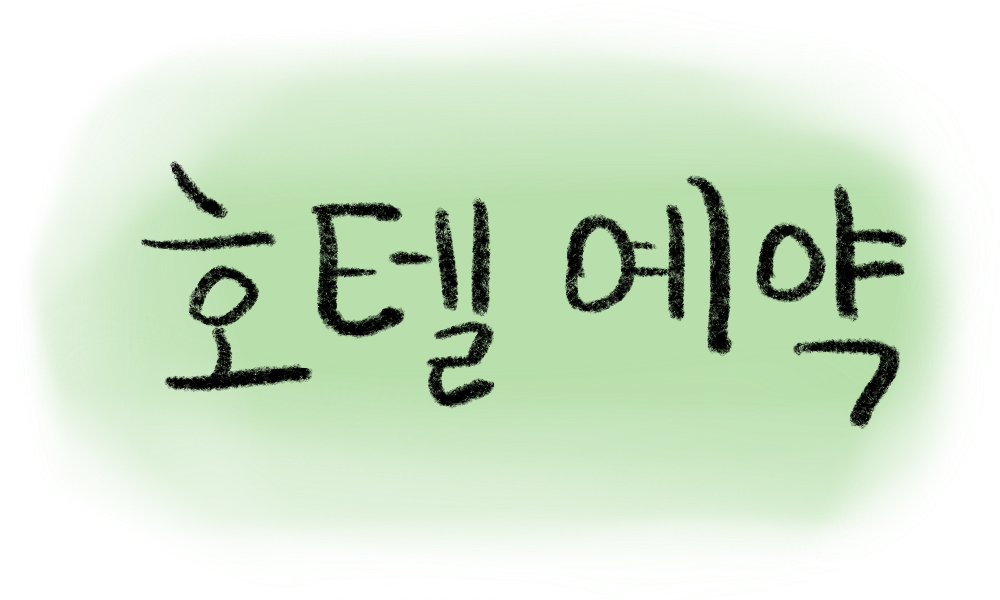 호텔 예약